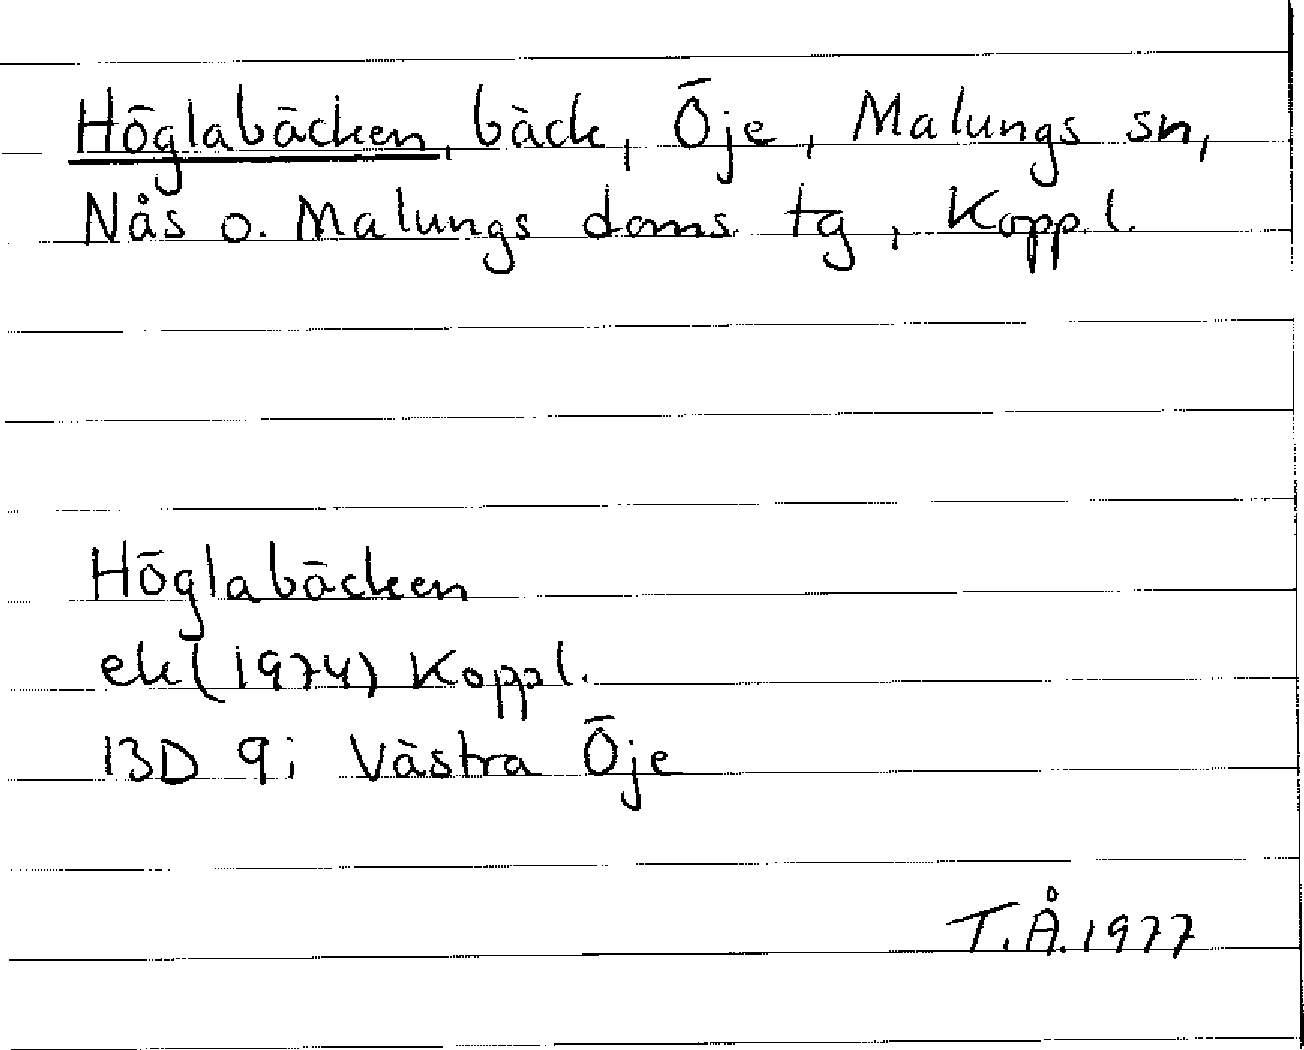 Höglabäcken, bäck, Öje, Malungs sn,
Nås o. Malungs doms. tg, Kopp.l.
Höglabäcken
ek (1974) Koppl.
13D 9i Västra Öje
T.Å. 1977